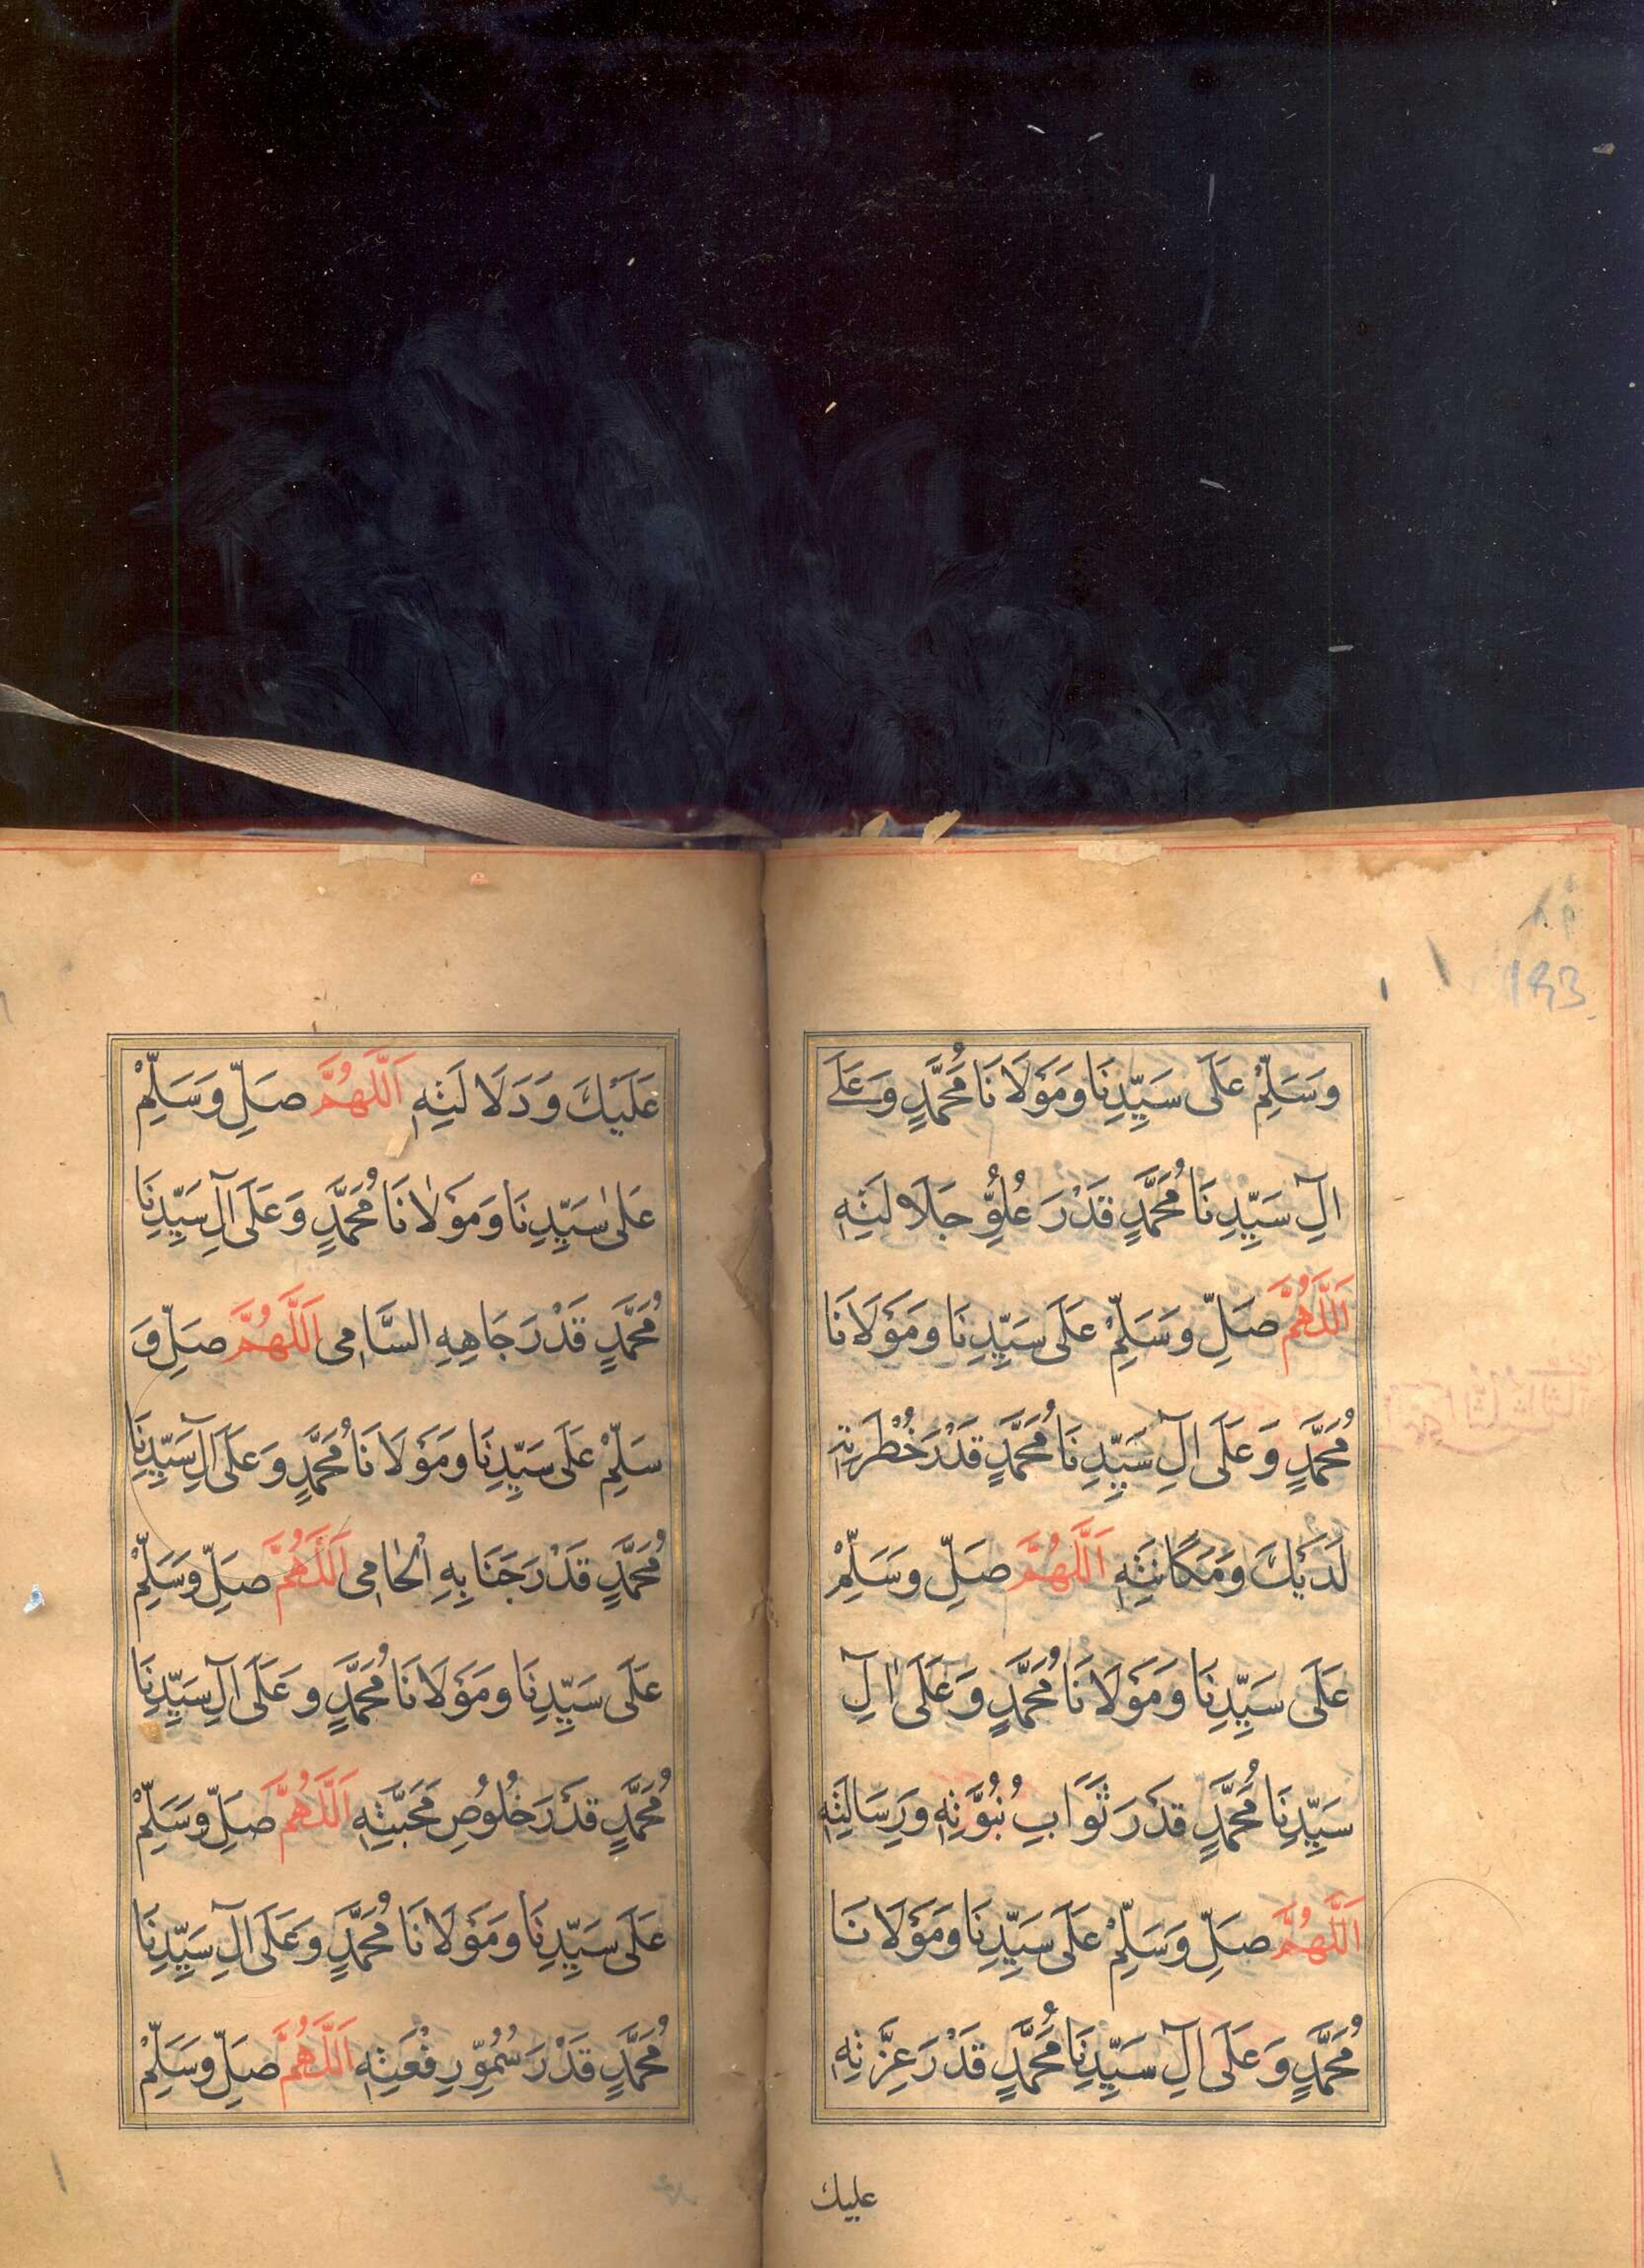 وَسَلِّمْ عَلَى سَيِّدِنَا وَمَوْلَانَا مُحَمَّدٍ وَعَلَے
اٰلِ سَيِّدِنَا مُحَمَّدٍ قَدْرَ عُلُوِّ جَلَالَتِهٖ
اَللّٰهُمَّ صَلِّ وَسَلِّمْ عَلَى سَيِّدِنَا وَمَوْلَانَا
مُحَمَّدٍ وَعَلَى اٰلِ سَيِّدِنَا مُحَمَّدٍ قَدْرَ
لَدَيْكَ وَمَكَانَتِهٖ اَللّٰهُمَّ صَلِّ وَسَلِّمْ
عَلَى سَيِّدِنَا وَمَوْلَانَا مُحَمَّدٍ وَعَلَى اٰلِ
سَيِّدِنَا مُحَمَّدٍ قَدْرَ ثَوَابِ نُبُوَّتِهٖ وَرِسَالَتِهٖ
اَللّٰهُمَّ صَلِّ وَسَلِّمْ عَلَى سَيِّدِنَا وَمَوْلَانَا
مُحَمَّدٍ وَعَلَى اٰلِ سَيِّدِنَا مُحَمَّدٍ قَدْرَ عِزَّتِهٖ
عليك
عَلَيْكَ وَدَلَالَتِهٖ اَللّٰهُمَّ صَلِّ وَسَلِّمْ
عَلٰى سَيِّدِنَا وَمَوْلَانَا مُحَمَّدٍ وَعَلَى اٰلِ سَيِّدِنَا
مُحَمَّدٍ قَدْرَ جَاهِهِ السَّامِى اَللّٰهُمَّ صَلِّ وَ
سَلِّمْ عَلَى سَيِّدِنَا وَمَوْلَانَا مُحَمَّدٍ وَعَلَى اٰلِ سَيِّدِنَا
مُحَمَّدٍ قَدْرَ جَنَابِهِ الْحَامِى اَللّٰهُمَّ صَلِّ وَسَلِّمْ
عَلَى سَيِّدِنَا وَمَوْلَانَا مُحَمَّدٍ وَعَلَى اٰلِ سَيِّدِنَا
مُحَمَّدٍ قَدْرَ خُلُوصِ مَحَبَّتِهٖ اَللّٰهُمَّ صَلِّ وَسَلِّمْ
عَلَى سَيِّدِنَا وَمَوْلَانَا مُحَمَّدٍ وَعَلَى اٰلِ سَيِّدِنَا
مُحَمَّدٍ قَدْرَ سُمُوِّ رِفْعَتِهٖ اَللّٰهُمَّ صَلِّ وَسَلِّمْ